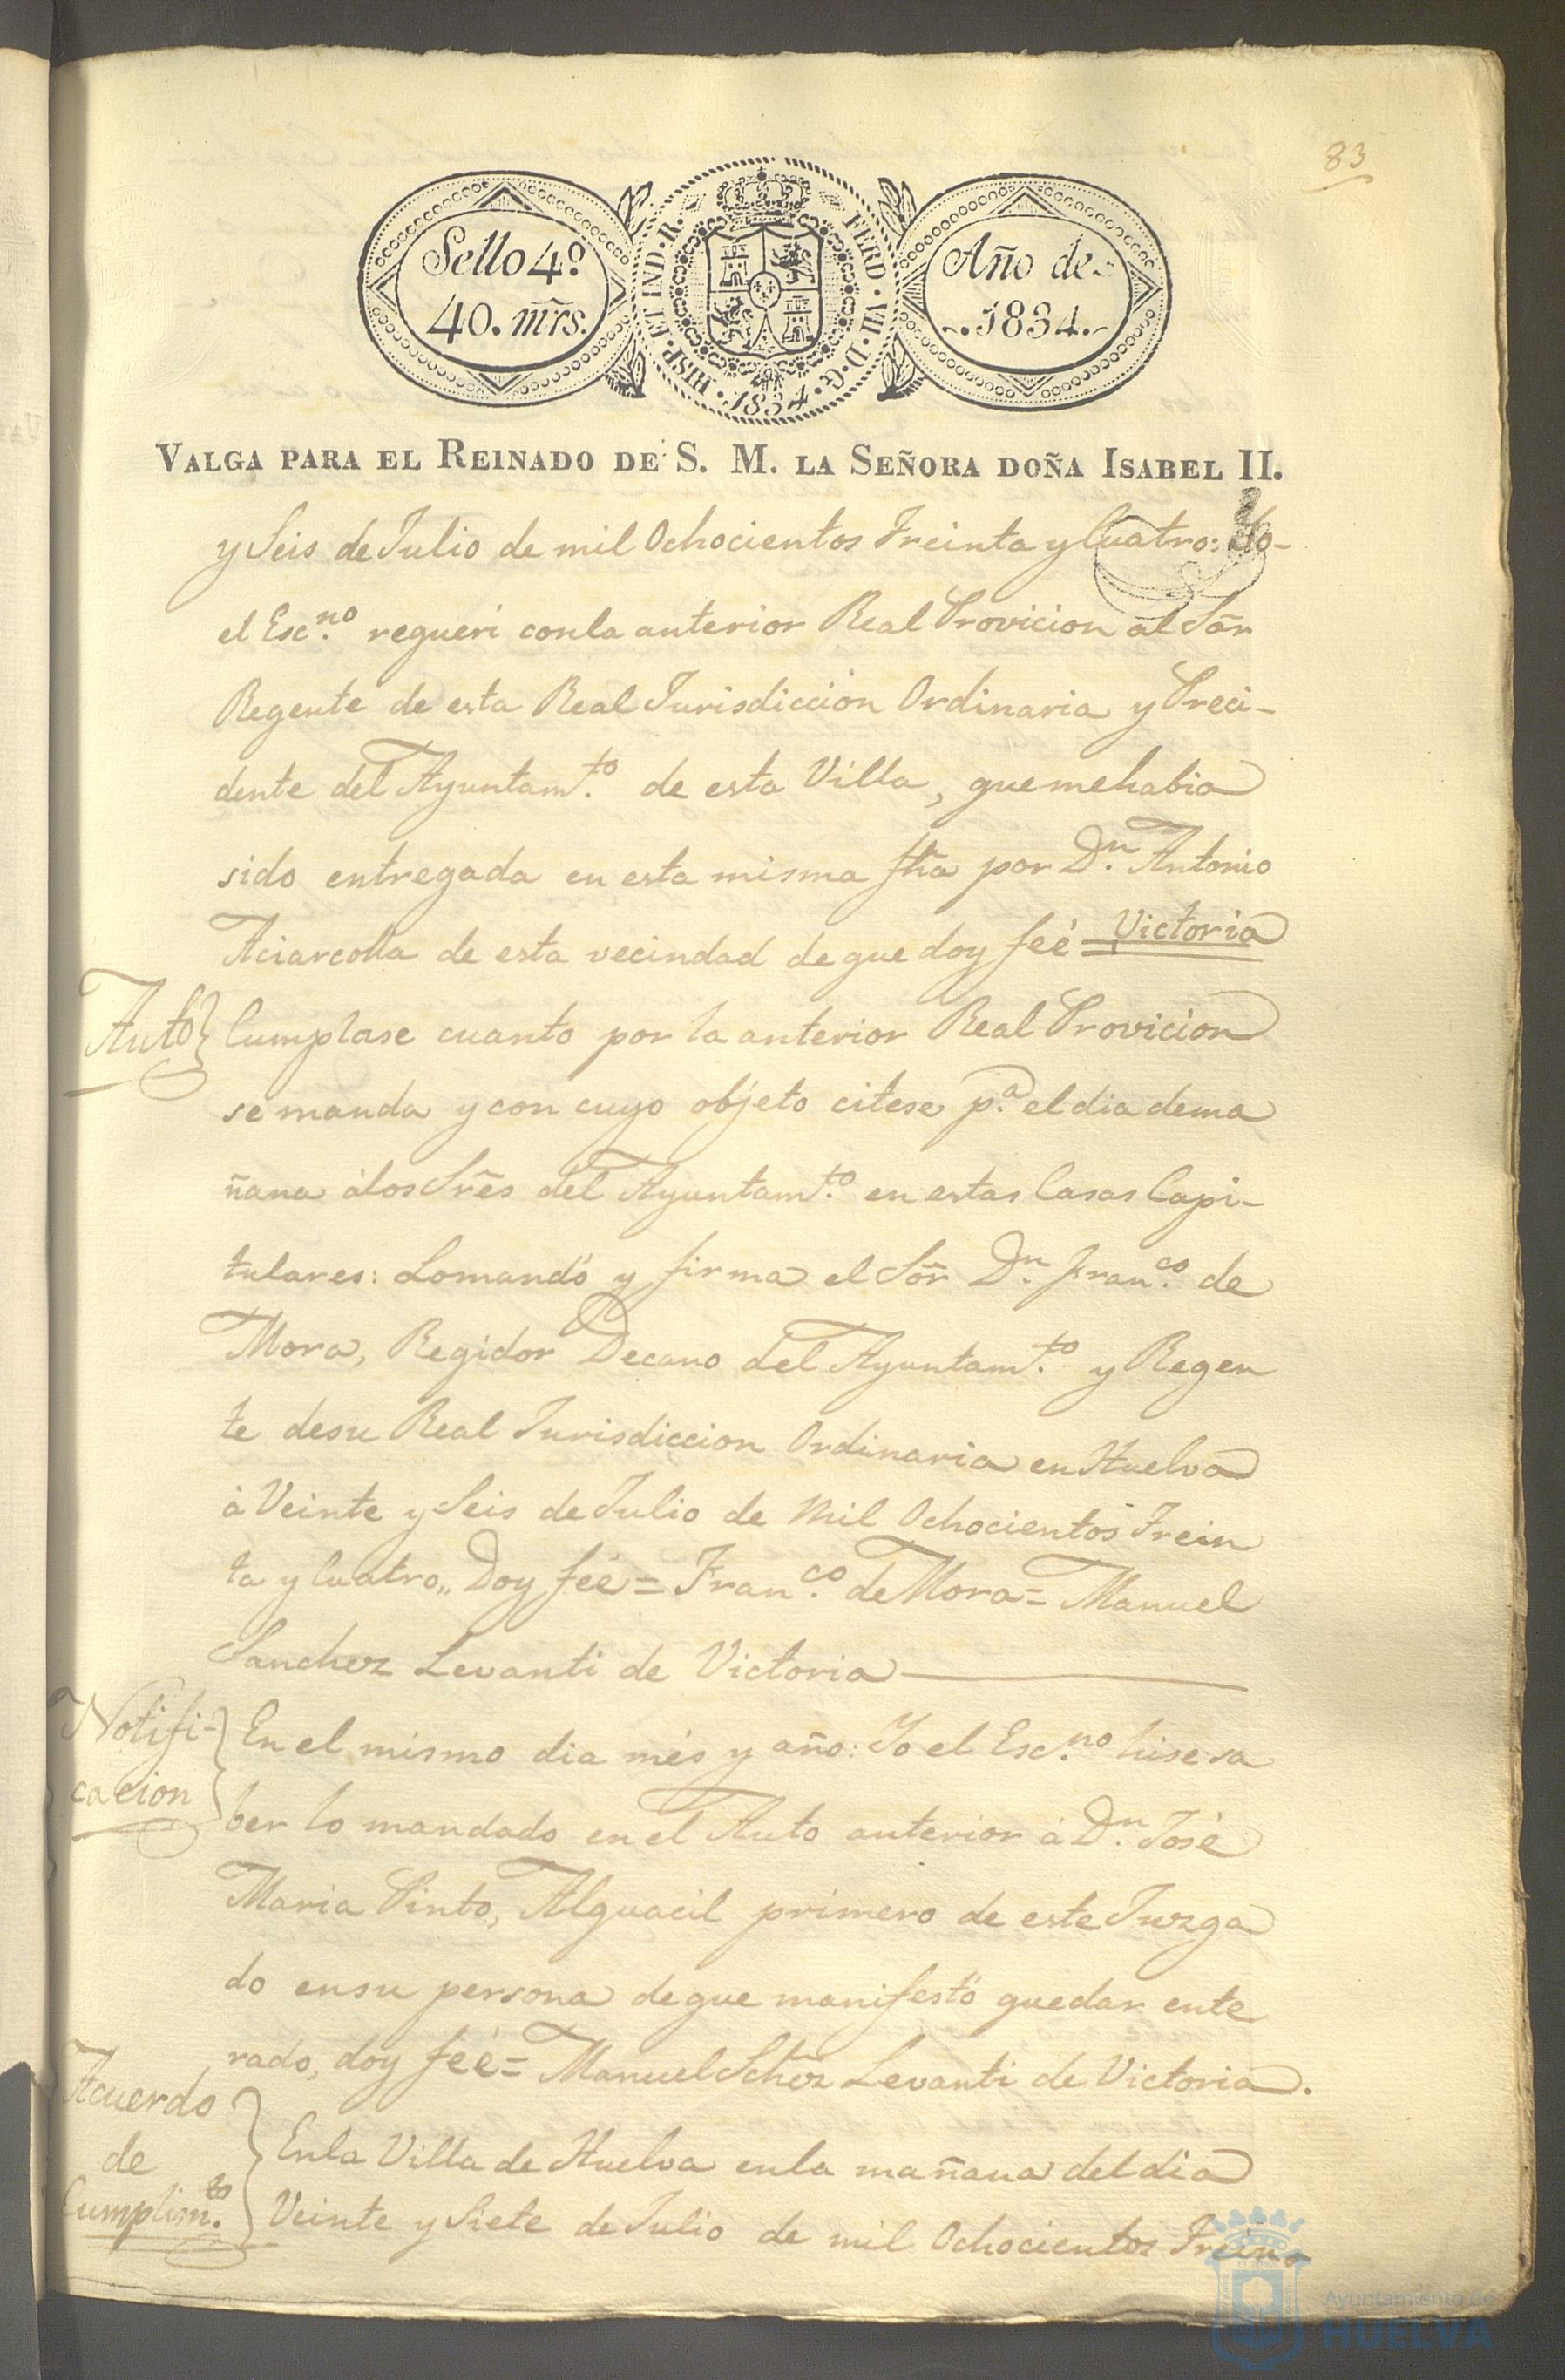 83
Sello 4º
40. mrs.
HISP. ET IND. R. FERD. VII. D. G. 1834.
Año de
1834.
VALGA PARA EL REINADO DE S. M. LA SEÑORA DOÑA ISABEL II.
y Seis de Julio de mil Ochocientos Treinta y Cuatro: Yo
el Escno. requeri conla anterior Real Provicion al Sõr
Regente de esta Real Jurisdiccion Ordinaria y Preci-
dente del Ayuntamto. de esta Villa, que mehabia
sido entregada en esta misma fha por Dn. Antonio
de esta vecindad de que doy feé = Victoria
Auto } Cumplase cuanto por la anterior Real Provicion
se manda y con cuyo objeto citese pa. el dia dema
ñana álos Srẽs del Ayuntamto. en estas Casas Capi-
tulares: Lomandó y firma el Sõr Dn. Franco. de
Mora, Regidor Decano del Ayuntamto. y Regen
te desu Real Jurisdiccion Ordinaria en Huelva
á Veinte y Seis de Julio de Mil Ochocientos Trein
ta y Cuatro,, Doy feé = Franco. de Mora = Manuel
Sanchez Levanti de Victoria
Notifi-
cacion } En el mismo dia més y año: Yo el Escno. hise sa
ber lo mandado en el Auto anterior á Dn. José
Maria Pinto, Alguacil primero de este Juzga
do ensu persona deque manifestó quedar ente
rado, doy feé = Manuel Schez Levanti de Victoria.
Acuerdo
de
Cumplimto. } Enla Villa de Huelva enla mañana del dia
Veinte y Siete de Julio de mil Ochocientos Trein
Ayuntamiento de
HUELVA